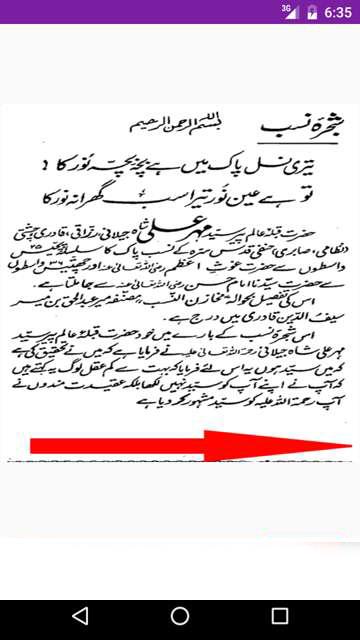 3G 6:35
شجرۂ نسب
بسم اللہ الرحمن الرحیم
تیری نسلِ پاک میں ہے بچہ بچہ نور کا
تو ہے عین نور تیرا سب گھرانہ نور کا
حضرت قبلۂ عالم پیر سید مہر علی شاہ جیلانی رزاقی، قادری چشتی
نظامی، صابری، حنفی قدس سرہ کے نسب پاک کا سلسلہ پچیس ۲۵
واسطوں سے حضرت غوث اعظم رضی اللہ تعالیٰ عنہ اور چھتیس ۳۶ واسطوں
سے حضرت سیدنا امام حسن رضی اللہ تعالیٰ عنہ سے جا ملتا ہے۔
اس کی تفصیل بحوالہ مخازن النسب، مصنفہ میر عبد الحی بن میر
سیف الدین قادری میں درج ہے۔
اس شجرہ نسب کے بارے میں خود حضرت قبلۂ عالم پیر سید
مہر علی شاہ جیلانی رحمۃ اللہ تعالیٰ علیہ نے فرمایا ہے کہ میں نے تحقیق کی ہے
کہ میں سید ہوں یہ اس لئے فرمایا کہ بہت سے کم عقل لوگ یہ کہتے ہیں
کہ آپ نے اپنے آپ کو سید نہیں لکھا بلکہ عقیدت مندوں نے
آپ رحمۃ اللہ علیہ کو سید مشہور کر دیا ہے